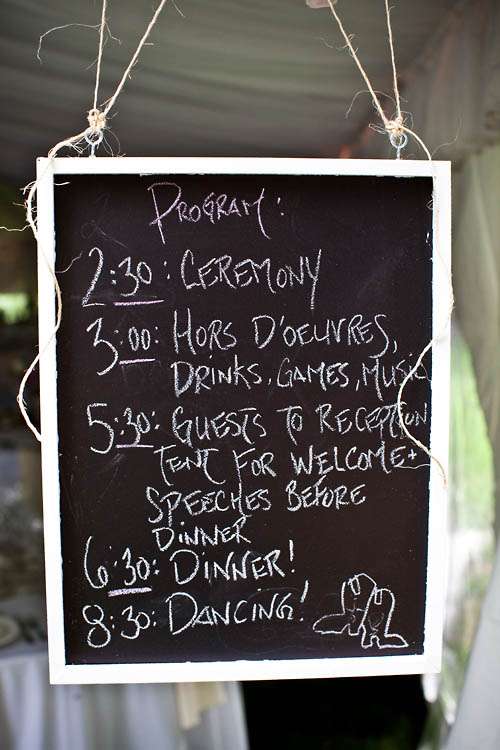 PROGRAM:
2:30: CEREMONY
3:00: HORS D'OEUVRES,
DRINKS, GAMES, MUSIC
5:30: GUESTS TO RECEPTION
TENT FOR WELCOME +
SPEECHES BEFORE
DINNER
6:30: DINNER!
8:30: DANCING!